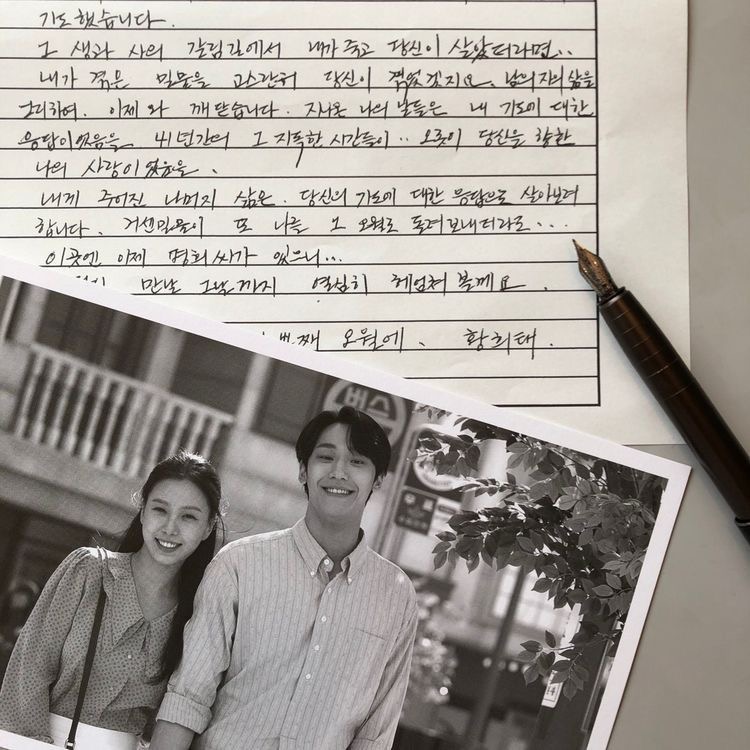 기도했습니다.
그 생과 사의 갈림길에서 내가 죽고 당신이 살았더라면..
내가 겪은 밀물을 고스란히 당신이 겪었겠지요. 남의 자의 삶을
그리하여. 이제와 깨닫습니다. 지나온 나의 날들은 내 기도에 대한
응답이었음을 41년간의 그 지독한 시간들이.. 오롯이 당신을 향한
나의 사랑이었음을.
내게 주어진 나머지 삶은. 당신의 기도에 대한 응답으로 살아보려
합니다. 거센밀물이 또 나를 그 오월로 돌려보내더라도...
이곳엔 이제 명희씨가 있으니...
만날 그날까지 열심히 헤엄쳐볼께요.
번째 오월에. 황희태.
버스
우표
14